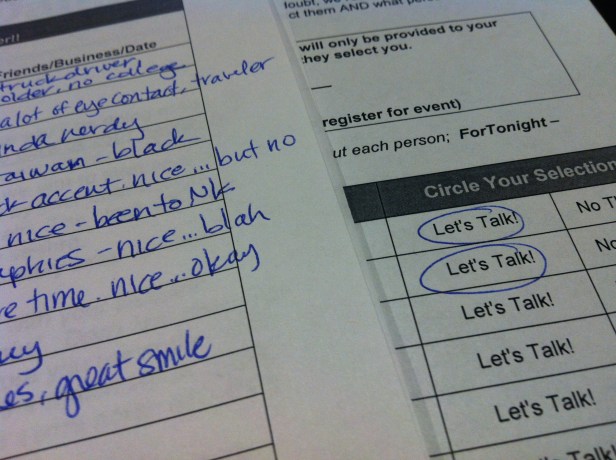 er!!
Friends/Business/Date
truck driver
older, no college
a lot of eye contact, traveler
nda nerdy
awam - black
accent. nice... but no
nice - been to
aphics - nice... blah
e time. nice... okay
uy
es, great smile
loubt, we
ct them AND what
will only be provided to your
hey select you.
register for event)
ut each person; ForTonight –
Circle Your Selection
Let's Talk!
No T
Let's Talk!
No
Let's Talk!
Let's Talk!
Let's Talk!
Talk!